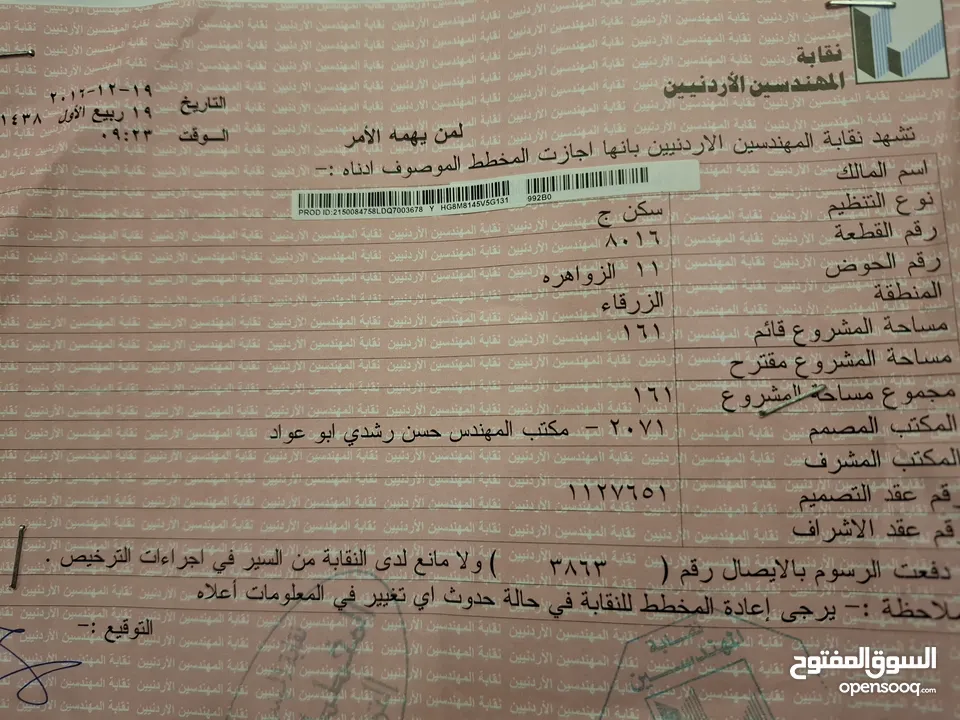 نقابة
المهندسين الأردنيين
التاريخ ١٩-١٢-٢٠١٢
١٩ ربيع الأول ١٤٣٨
الوقت ٠٩:٢٣
لمن يهمه الأمر
تشهد نقابة المهندسين الاردنيين بانها اجازت المخطط الموصوف ادناه :-
اسم المالك
PROD ID:2150084758LDQ7003678 Y HG8M8145V5G131 992B0
نوع التنظيم سكن ج
رقم القطعة ٨٠١٦
رقم الحوض ١١ الزواهره
المنطقة الزرقاء
مساحة المشروع قائم ١٦١
مساحة المشروع مقترح
مجموع مساحة المشروع ١٦١
المكتب المصمم ٢٠٧١ - مكتب المهندس حسن رشدي ابو عواد
المكتب المشرف
رقم عقد التصميم ١١٢٧٦٥١
رقم عقد الاشراف
دفعت الرسوم بالايصال رقم ( ٣٨٦٣ ) ولا مانع لدى النقابة من السير في اجراءات الترخيص .
ملاحظة :- يرجى إعادة المخطط للنقابة في حالة حدوث اي تغيير في المعلومات أعلاه
التوقيع :-
السوق المفتوح
opensooq.com